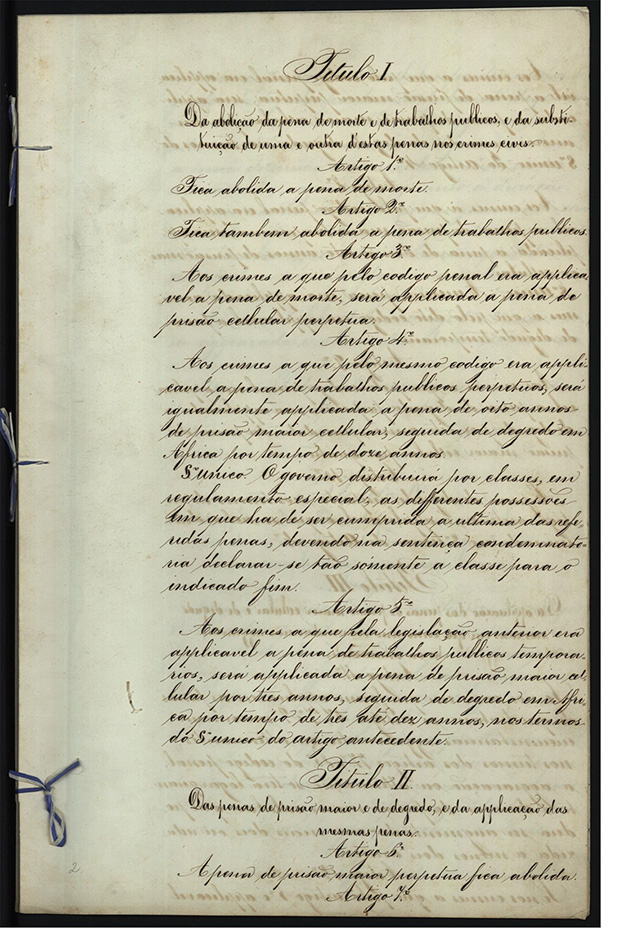 Titulo I
Da abolição da pena de morte e de trabalhos publicos, e da substi-
tuição de uma e outra d'estas penas nos crimes civis.
Artigo 1.º
Fica abolida a pena de morte.
Artigo 2.º
Fica tambem abolida a pena de trabalhos publicos.
Artigo 3.º
Aos crimes a que pelo codigo penal era applica-
vel a pena de morte, será applicada a pena de
prisão cellular perpetua.
Artigo 4.º
Aos crimes a que pelo mesmo codigo era appli-
cavel a pena de trabalhos publicos perpetuos, será
igualmente applicada a pena de oito annos
de prisão maior cellular, seguida de degredo em
Africa por tempo de doze annos.
§ unico. O governo distribuirá por classes, em
regulamento especial, as differentes possessões
em que ha de ser cumprida a ultima das refe-
ridas penas, devendo na sentença condemnato-
ria declarar-se tão somente a classe para o
indicado fim.
Artigo 5.º
Aos crimes a que pela legislação anterior era
applicavel a pena de trabalhos publicos tempora-
rios, será applicada a pena de prisão maior cel-
lular por tres annos, seguida de degredo em Afri-
ca por tempo de tres até dez annos, nos termos
do § unico do artigo antecedente.
Titulo II
Das penas de prisão maior e de degredo, e da applicação das
mesmas penas.
Artigo 6.º
A pena de prisão maior perpetua fica abolida.
Artigo 7.º
2